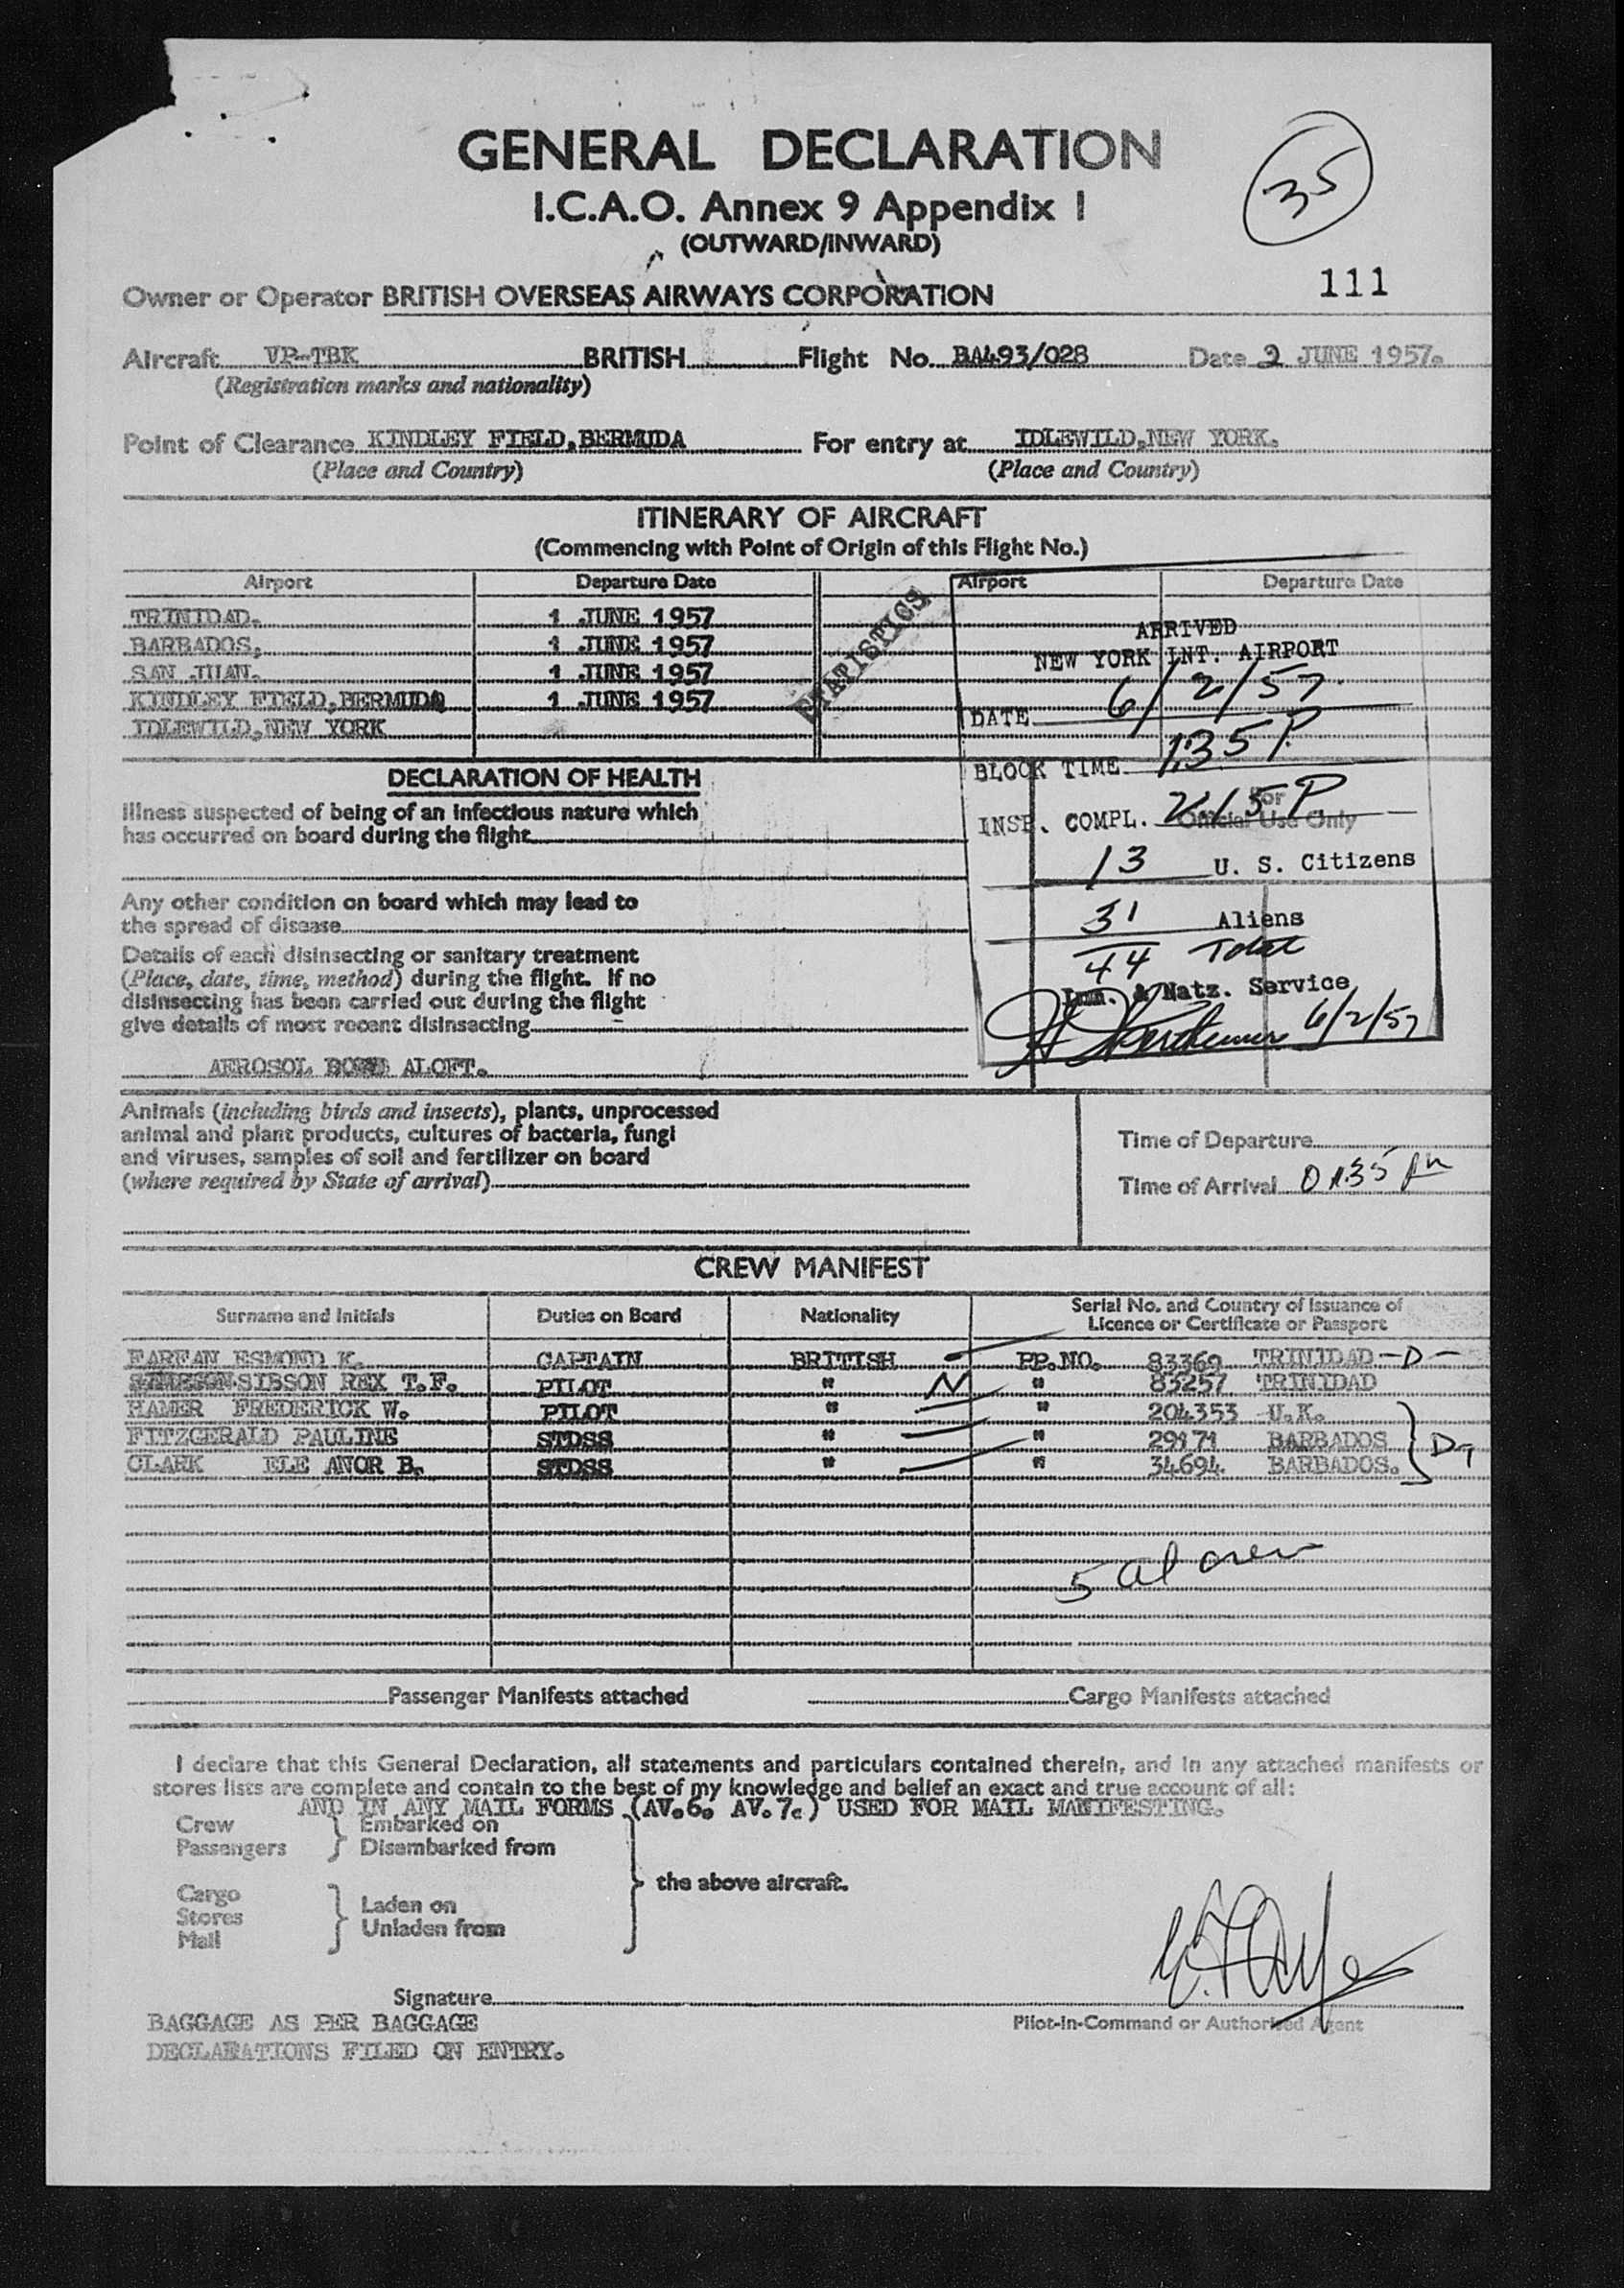 GENERAL DECLARATION
35
I.C.A.O. Annex 9 Appendix I
(OUTWARD/INWARD)
111
Owner or Operator BRITISH OVERSEAS AIRWAYS CORPORATION
Aircraft VP-TBK BRITISH Flight No. BA493/028 Date 2 JUNE 1957.
(Registration marks and nationality)
Point of Clearance KINDLEY FIELD,BERMUDA For entry at IDLEWILD,NEW YORK.
(Place and Country) (Place and Country)
ITINERARY OF AIRCRAFT
(Commencing with Point of Origin of this Flight No.)
Airport Departure Date Airport Departure Date
TRINIDAD. 1 JUNE 1957
BARBADOS. 1 JUNE 1957
SAN JUAN. 1 JUNE 1957
KINDLEY FIELD,BERMUDA 1 JUNE 1957
IDLEWILD,NEW YORK
STATISTICS
ARRIVED
NEW YORK INT. AIRPORT
DATE 6/2/57
BLOCK TIME 1:35 P
INSP. COMPL. 2:15 P
For
Official Use Only
13 U. S. Citizens
31 Aliens
44 Total
Imm. & Natz. Service
6/2/57
DECLARATION OF HEALTH
Illness suspected of being of an infectious nature which
has occurred on board during the flight
Any other condition on board which may lead to
the spread of disease
Details of each disinsecting or sanitary treatment
(Place, date, time, method) during the flight. If no
disinsecting has been carried out during the flight
give details of most recent disinsecting
AEROSOL BOMB ALOFT.
Animals (including birds and insects), plants, unprocessed
animal and plant products, cultures of bacteria, fungi
and viruses, samples of soil and fertilizer on board
(where required by State of arrival)
Time of Departure
Time of Arrival 01:35 pm
CREW MANIFEST
Surname and Initials Duties on Board Nationality Serial No. and Country of Issuance of
Licence or Certificate or Passport
FARFAN ESMOND K. CAPTAIN BRITISH PP.NO. 83369 TRINIDAD -D-
SIBSON REX T.F. PILOT " N " 83257 TRINIDAD
HAMER FREDERICK W. PILOT " " 204353 U.K.
FITZGERALD PAULINE STDSS " " 29171 BARBADOS
CLARK ELE ANOR B. STDSS " " 34694 BARBADOS.
5 al crew
Passenger Manifests attached Cargo Manifests attached
I declare that this General Declaration, all statements and particulars contained therein, and in any attached manifests or
stores lists are complete and contain to the best of my knowledge and belief an exact and true account of all:
AND IN ANY MAIL FORMS (AV.6. AV.7.) USED FOR MAIL MANIFESTING.
Crew Embarked on
Passengers Disembarked from
the above aircraft.
Cargo
Stores Laden on
Mail Unladen from
Signature
BAGGAGE AS PER BAGGAGE Pilot-in-Command or Authorised Agent
DECLARATIONS FILED ON ENTRY.